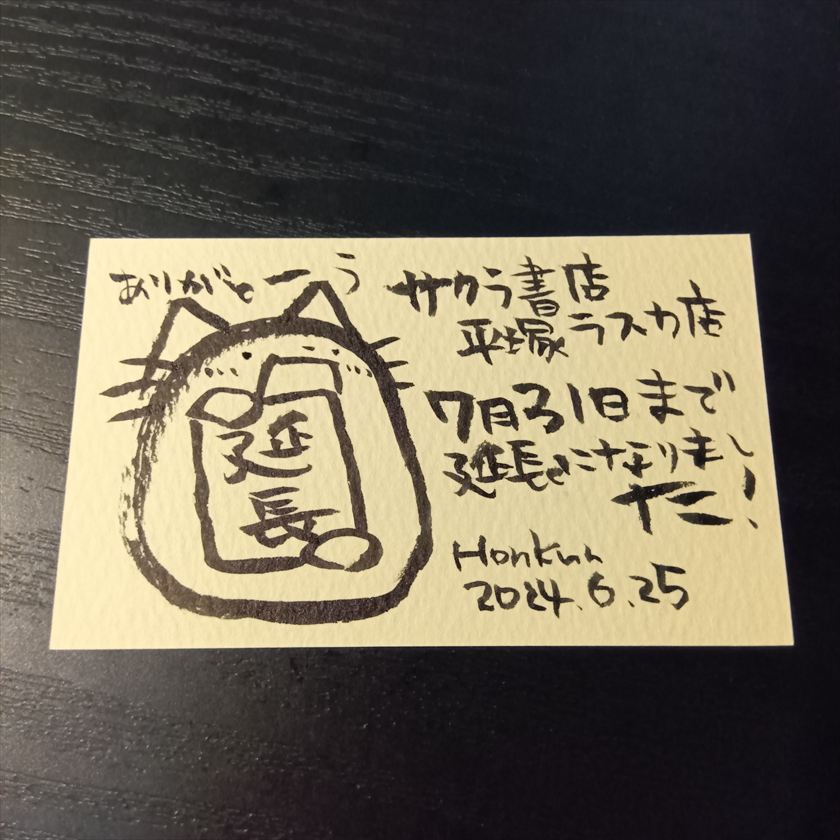 ありがとーう
延
長
サクラ書店
平塚ラスカ店
7月31日まで
延長になりまし
た!
Honkun
2024.6.25